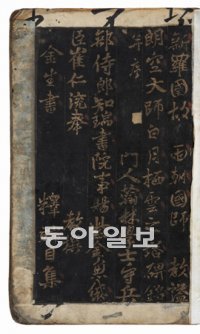 新羅國故 兩朝國師 教諡
朗空大師白月栖雲之塔碑銘
并序 門人翰林學士守兵
部侍郎知瑞書院事賜紫金魚袋
臣崔仁渷奉 教撰
金生書 釋 目集
동아일보